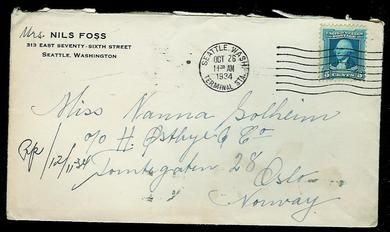 Mrs. NILS FOSS
313 EAST SEVENTY-SIXTH STREET
SEATTLE, WASHINGTON
SEATTLE, WASH.
OCT 26
11 30 AM
1934
TERMINAL STA.
UNITED STATES POSTAGE
5 CENTS 5
Miss Nanna Solheim
c/o H. Østbye & Co
Tomtegaten 28
Oslo
Norway
12/11-34